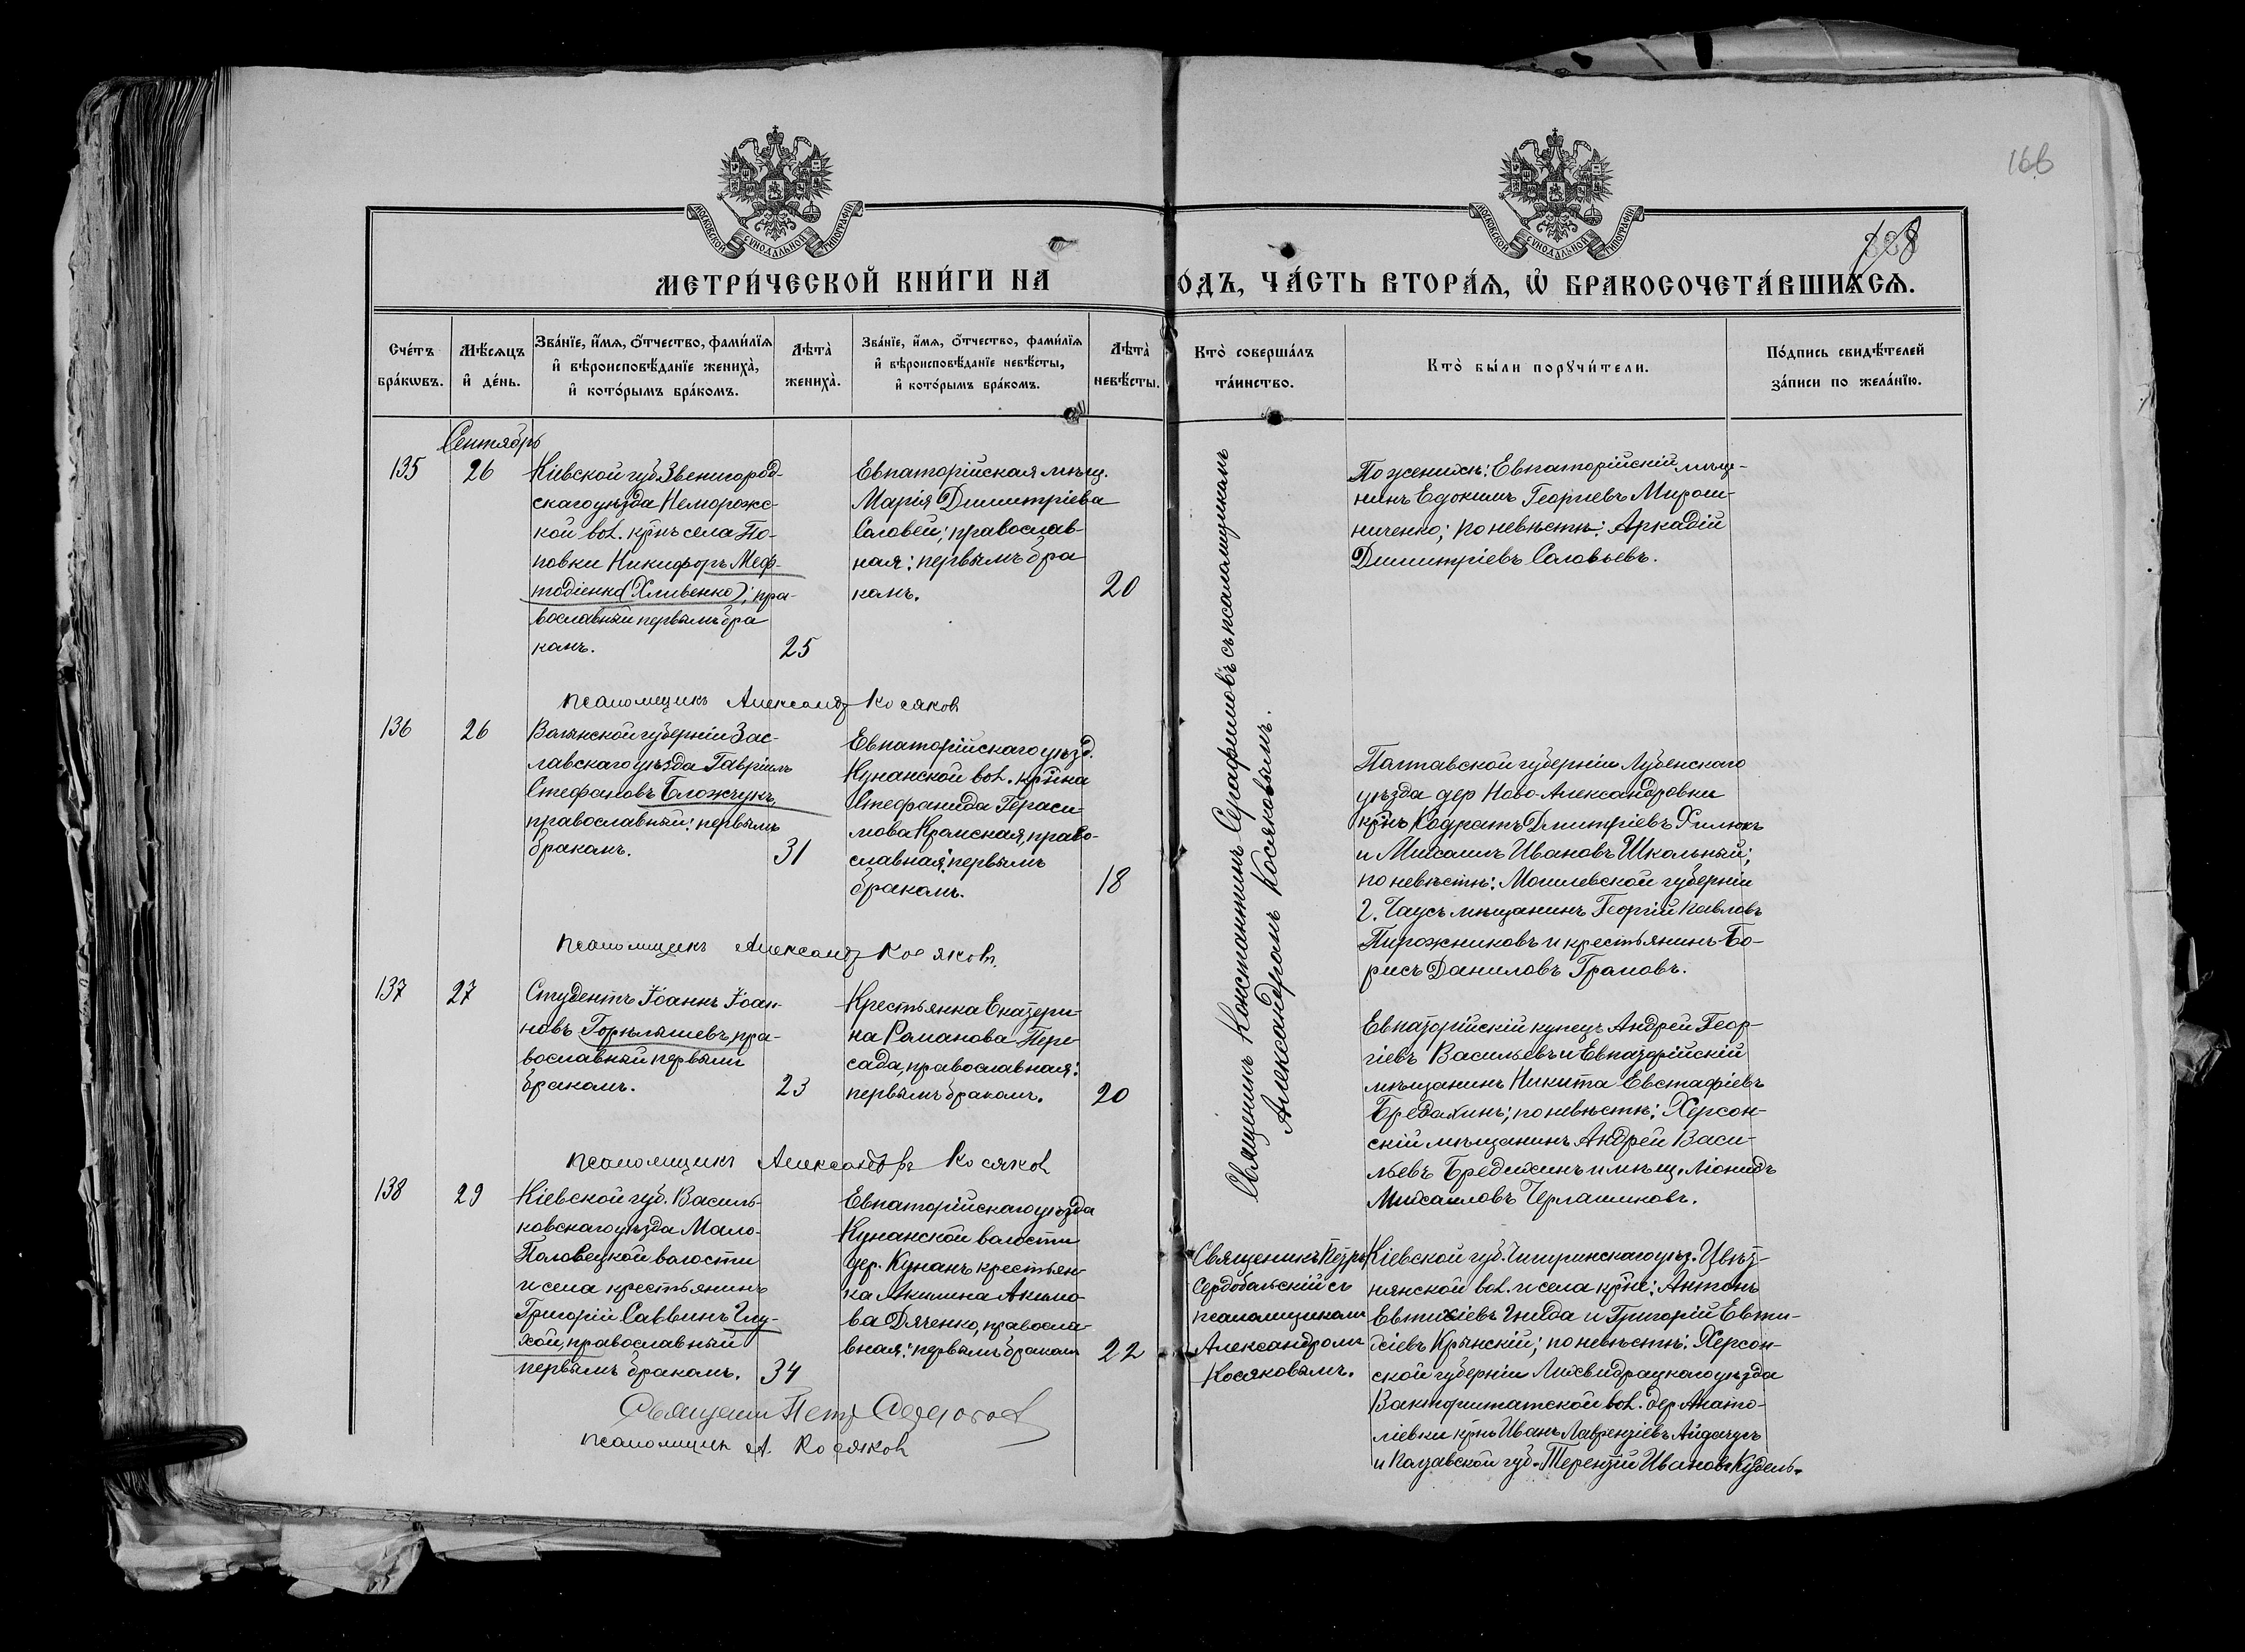 166
МОСКОВСКОЙ СУНОДАЛЬНОЙ ТИПОГРАФІИ
МОСКОВСКОЙ СУНОДАЛЬНОЙ ТИПОГРАФІИ
МЕТРИ́ЧЕСКОЙ КНИ́ГИ НА
О́ДЪ, ЧА́СТЬ ВТОРА́Ѧ, Ѡ҆ БРАКОСОЧЕТА́ВШИХСѦ.
Сче́тъ бра́кѡвъ.
Мѣ́сѧцъ и҆ де́нь.
Зва́нїе, и҆́мѧ, ѻ҆́тчество, фами́лїѧ
и҆ вѣроисповѣ́данїе жениха̀,
и҆ кото́рымъ бра́комъ.
Лѣта̀ жениха̀.
Зва́нїе, и҆́мѧ, ѻ҆́тчество, фами́лїѧ
и҆ вѣроисповѣ́данїе невѣ́сты,
и҆ кото́рымъ бра́комъ.
Лѣта̀ невѣ́сты.
Кто̀ соверша́лъ
та́инство.
Кто̀ бы́ли порꙋчи́тели.
По́дпись свидѣ́телей
за́писи по жела́нїю.
Сентябрь
135
26
Кіевской губ. Звенигород-
скаго уѣзда Неморожс-
кой вол. крнъ села По-
повки Никифоръ Меф-
тодіенко (Хливенко); пра-
вославный первымъ бра
комъ.
25
Евпаторійская мѣщ.
Марія Димитріева
Соловей; православ-
ная: первымъ бра
комъ.
20
Священникъ Константинъ Серафимовъ съ псаломщикомъ
Александромъ Косяковымъ.
По женихѣ: Евпаторійскій мѣща-
нинъ Едокимъ Георгіевъ Мирош-
ниченко; по невѣстѣ: Аркадій
Димитріевъ Соловьевъ.
псаломщикъ Александр Косяков
136
26
Волынской губерніи Зас-
лавскаго уѣзда Гавріилъ
Стефановъ Бложчукъ,
православный: первымъ
бракомъ.
31
Евпаторійскаго уѣзд.
Кунанской вол. крнка
Стефанида Гераси-
мова Крамская, право-
славная: первымъ
бракомъ.
18
Полтавской губерніи Лубенскаго
уѣзда дер Ново-Александровки
крнъ Кодратъ Дмитріевъ Хилюкъ
и Михаилъ Ивановъ Школьный;
по невѣстѣ: Могилевской губерніи
г. Чаусъ мѣщанинъ Георгій Павловъ
Пирожниковъ и крестьянинъ Бо-
рисъ Даниловъ Громовъ.
псаломщикъ Александр Косяковъ.
137
27
Студентъ Іоаннъ Іоан-
новъ Горѣлышевъ, пра-
вославный первымъ
бракомъ.
23
Крестьянка Екатери-
на Романова Пере-
сада, православная:
первымъ бракомъ.
20
Евпаторійскій купецъ Андрей Геор-
гіевъ Васильевъ и Евпаторійскій
мѣщанинъ Никита Евстафіевъ
Бредихинъ; по невѣстѣ: Херсон-
скій мѣщанинъ Андрей Васи-
льевъ Бредихинъ и мѣщ. Ліонидъ
Михаиловъ
псаломщикъ Александръ Косяков
138
29
Кіевской губ. Василь-
ковскаго уѣзда Мало-
Половецкой волости
и села крестьянинъ
Григорій Саввинъ Глу-
хой, православный
первымъ бракомъ.
34
Евпаторійскаго уѣзда
Кунанской волости
дер. Кунанъ крестьян-
ка Акилина Акимо-
ва Дяченко, правосла-
вная: первымъ бракомъ
22
Священникъ Петръ
Сердобольскій съ
псаломщикомъ
Александромъ
Косяковымъ.
Кіевской губ. Чигиринскаго уѣз. Цвѣт-
нянской вол. и села крне: Антонъ
Евтихіевъ Гнида и Григорій Евти-
хіевъ Крынскій; по невѣстѣ: Херсон-
ской губерніи уѣзда
вол. дер. Анато-
ліевки крнъ Иванъ Лаврентіевъ
и Полтавской губ. Терентій Ивановъ Кубель.
Священ Петр
псаломщик А. Косяков